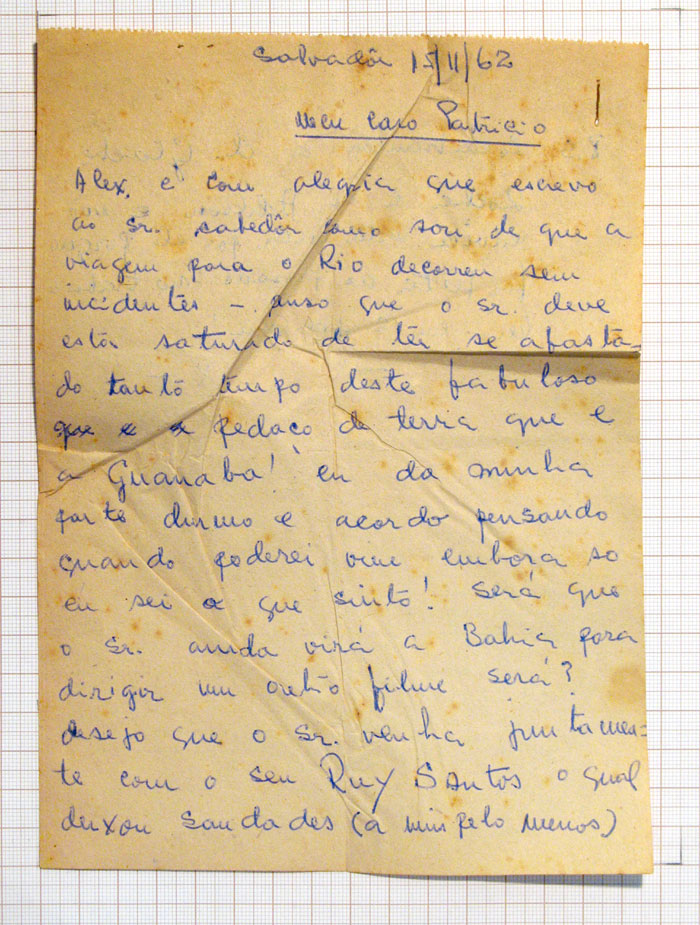 Salvadôr 15/11/62
Meu caro Patricio
Alex, e com alegria que escrevo
ao sr. sabedôr como sou, de que a
viagem para o Rio decorreu sem
incidentes – penso que o sr. deve
está saturado de têr se afasta-
do tanto tempo deste fabuloso
pedaço de terra que e
a Guanaba! eu da minha
parte durmo e acordo pensando
quando poderei vim embora so
eu sei o que sinto! Será que
o sr. ainda virá a Bahia para
dirigir um outro filme será?
desejo que o sr. venha juntamen=
te com o seu Ruy Santos o qual
deixou saudades (a mim pelo menos)